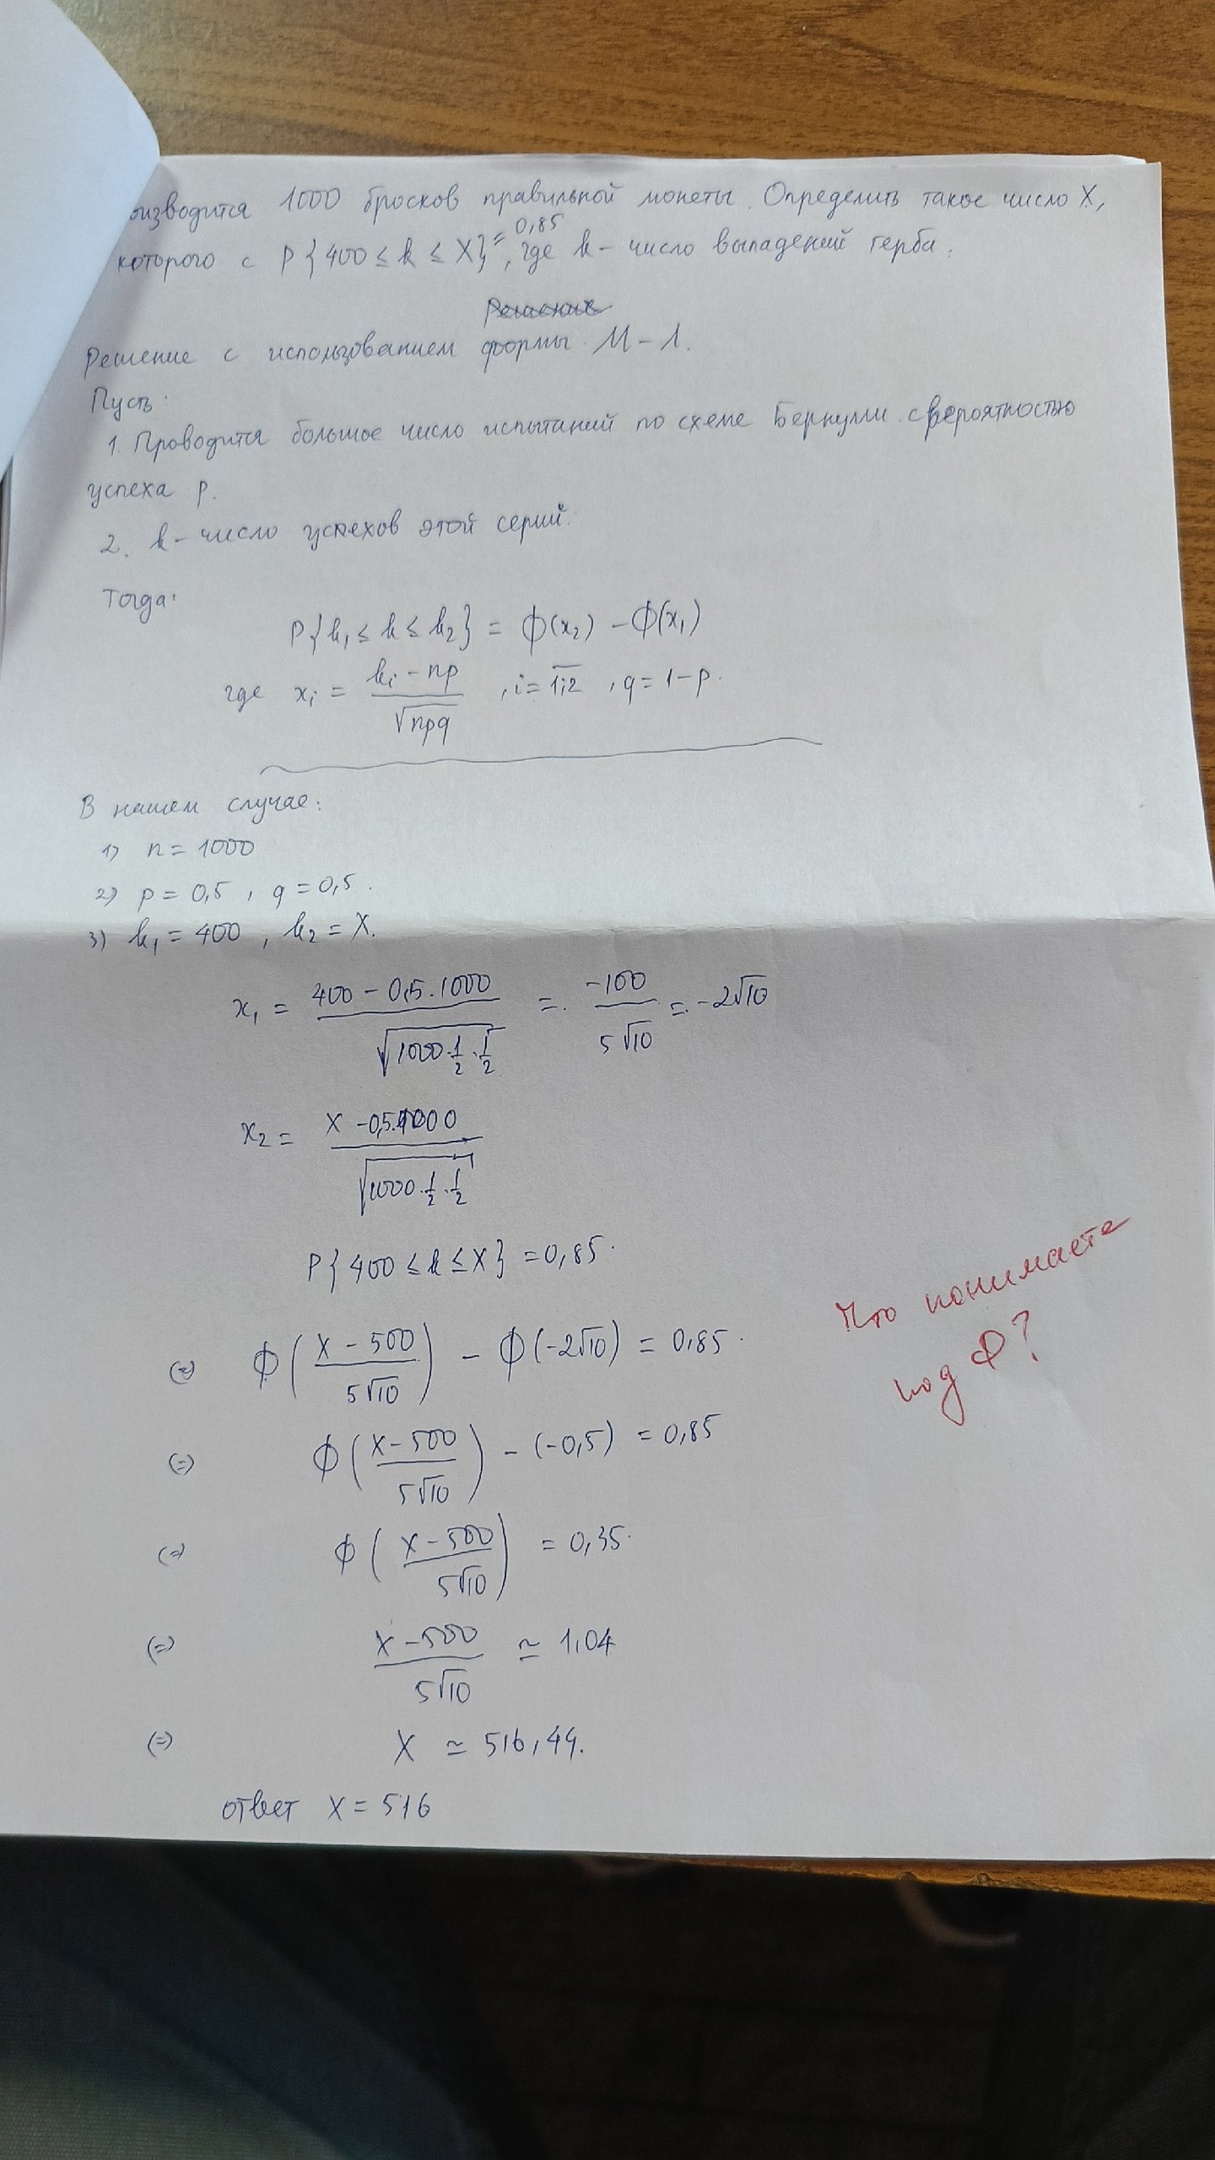 оизводится 1000 бросков правильной монеты. Определить такое число X,
которого с P{400 ≤ k ≤ X} = 0,85, где k - число выпадений герба.
Решение
Решение с использованием формы М-Л.
Пусть:
1. Проводится большое число испытаний по схеме Бернулли с вероятностью
успеха p.
2. k - число успехов этой серий.
Тогда:
P{k₁ ≤ k ≤ k₂} = Ф(x₂) - Ф(x₁)
где xᵢ = (kᵢ - np)/√(npq), i = 1,2, q = 1-p.
В нашем случае:
1) n = 1000
2) p = 0,5, q = 0,5.
3) k₁ = 400, k₂ = X.
x₁ = (400 - 0,5·1000)/√(1000·1/2·1/2) = -100/(5√10) = -2√10
x₂ = (X - 0,5·1000)/√(1000·1/2·1/2)
P{400 ≤ k ≤ X} = 0,85.
(=) Ф((X - 500)/(5√10)) - Ф(-2√10) = 0,85.
(=) Ф((X - 500)/(5√10)) - (-0,5) = 0,85
(=) Ф((X - 500)/(5√10)) = 0,35.
(=) (X - 500)/(5√10) ≃ 1,04
(=) X ≃ 516,44.
ответ X = 516
Что понимаете
под Ф?